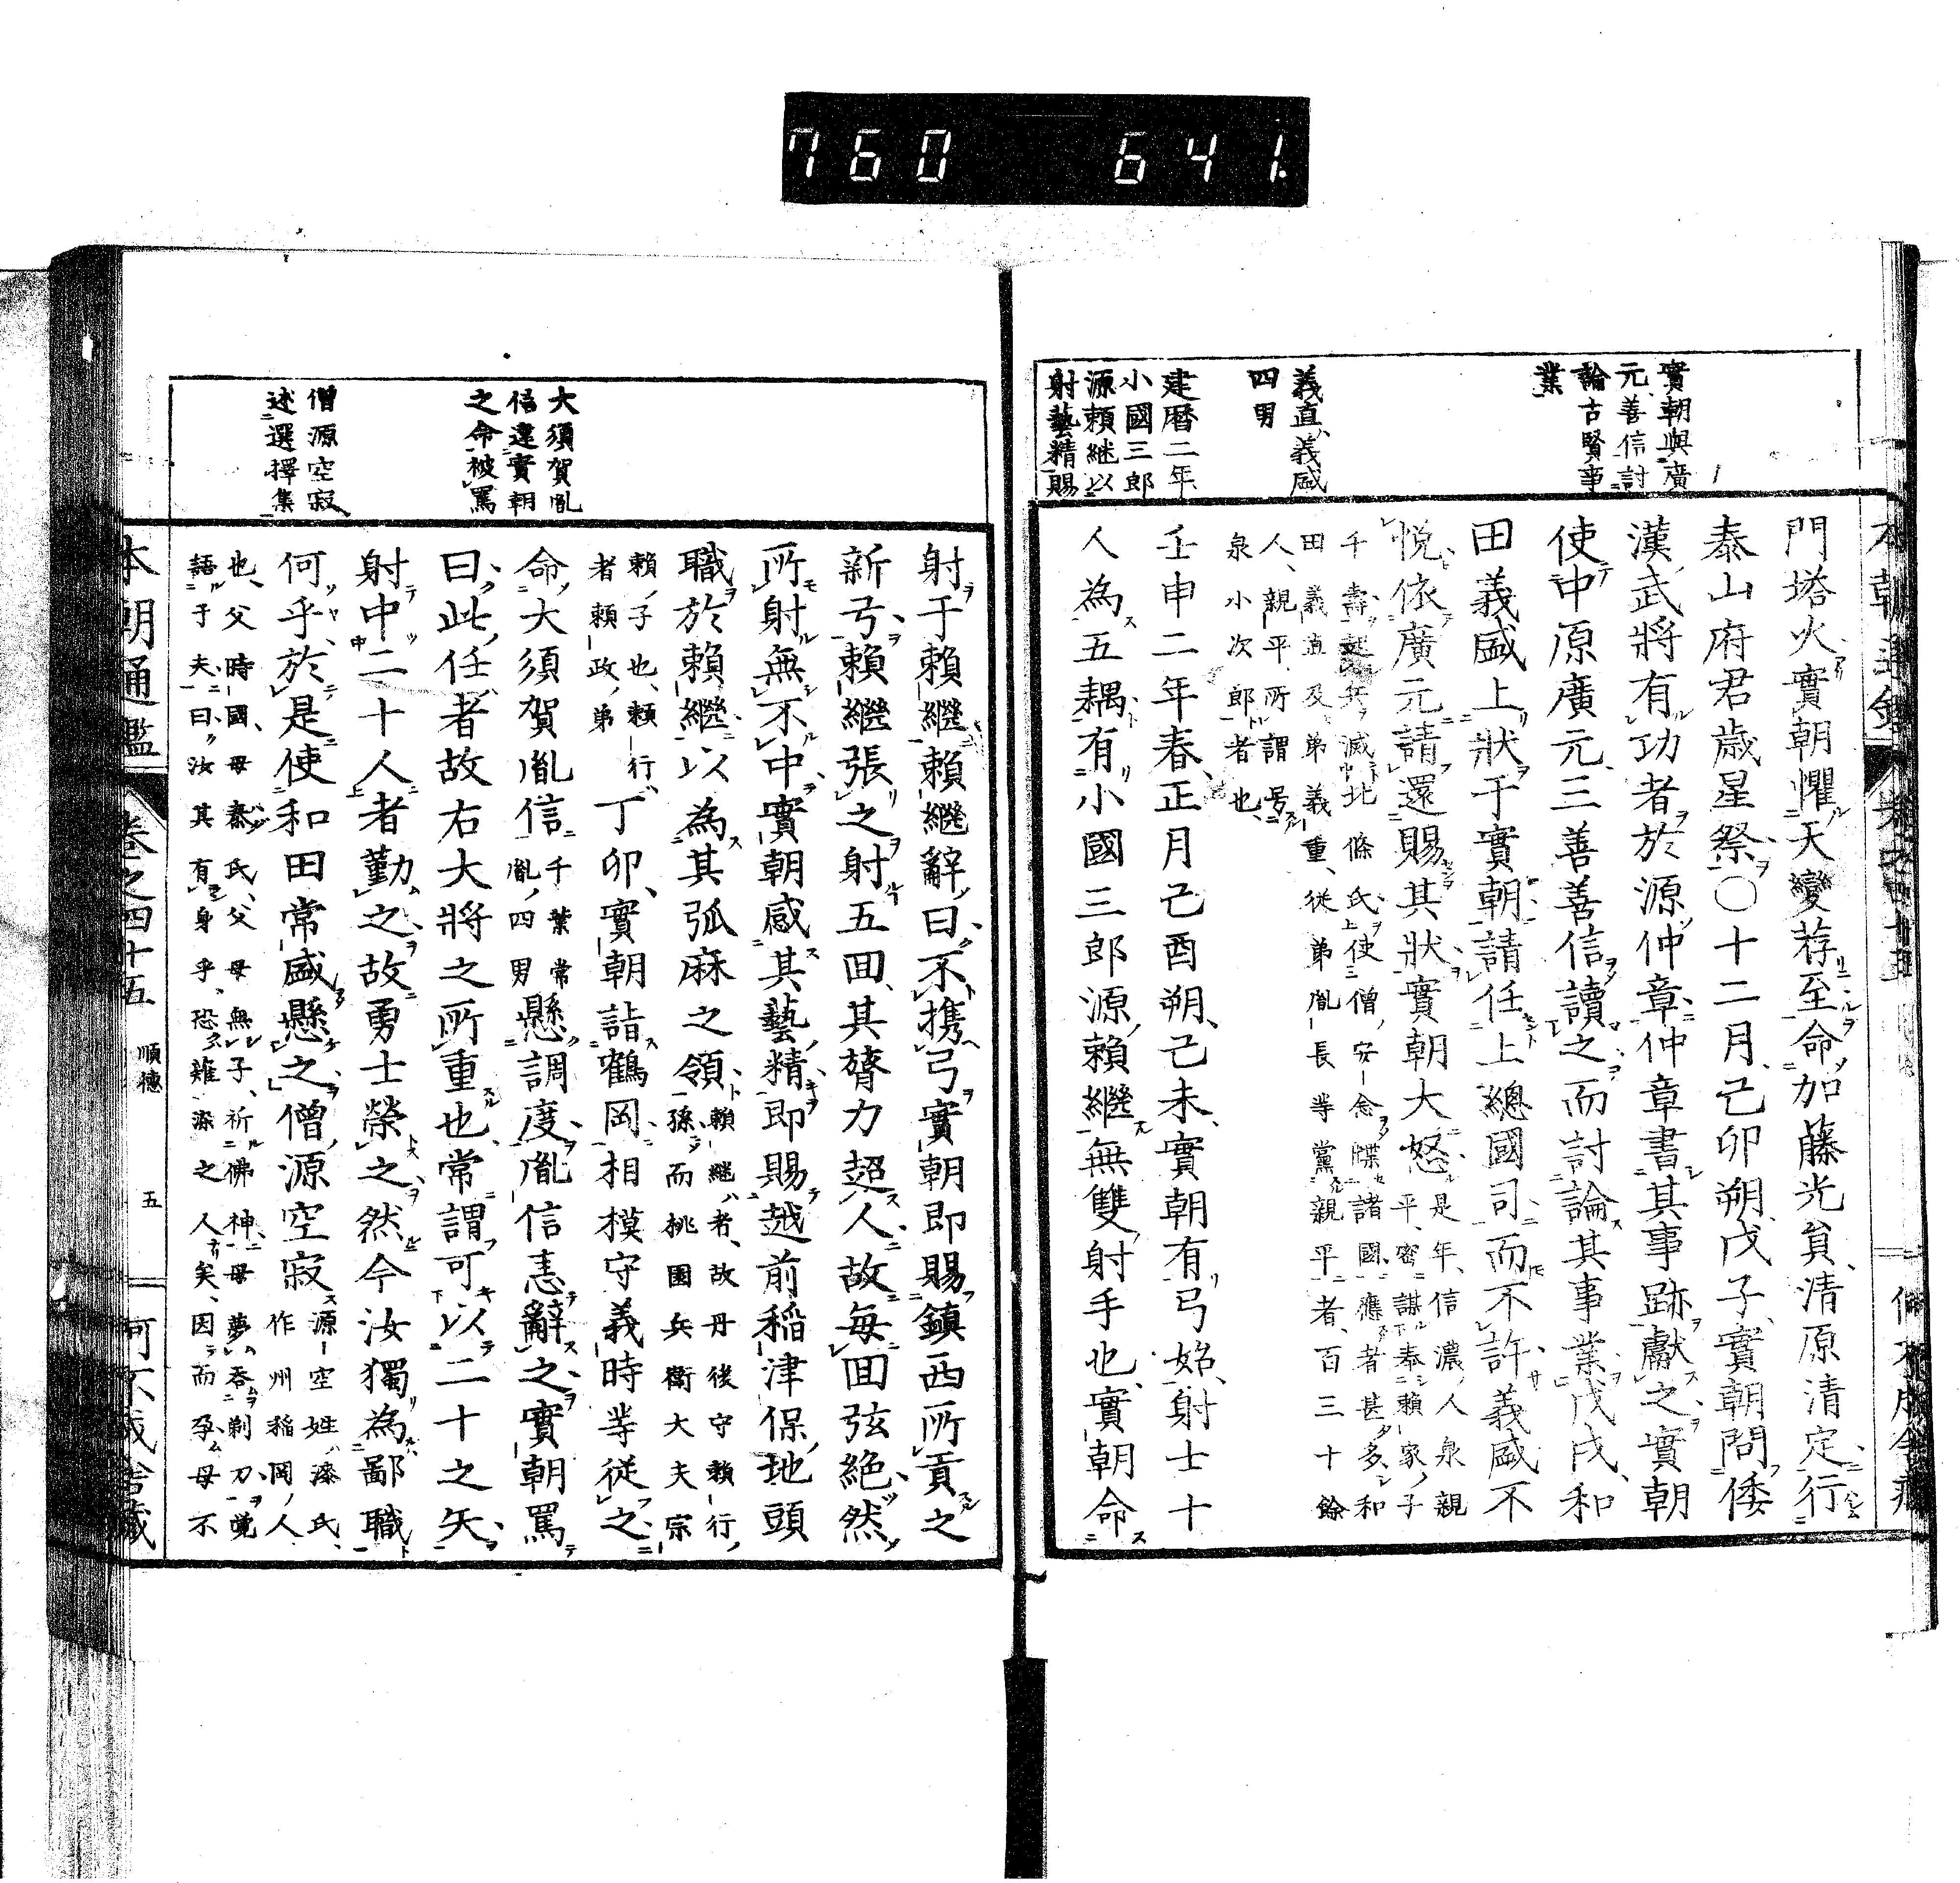 760 641.
實朝與廣
元善信討
論古賢事
業
義直義盛
四男
建暦二年
小國三郎
源頼継以
射藝精賜
門塔火實朝懼天變荐至命加藤光員清原清定行
泰山府君歳星祭○十二月己卯朔戊子實朝問倭
漢武將有功者於源仲章仲章書其事跡獻之實朝
使中原廣元三善善信讀之而討論其事業戊戌和
田義盛上狀于實朝請任上總國司而不許義盛不
悦依廣元請還賜其狀實朝大怒
是年信濃人泉親
平密謀奉頼家子
千壽起兵滅北條氏使僧安念牒諸國應者甚多和
田義直及弟義重從弟胤長等黨親平者百三十餘
人親平所謂号
泉小次郎者也
壬申二年春正月己酉朔己未實朝有弓始射士十
人為五耦有小國三郎源頼繼無雙射手也實朝命
大須賀胤
信違實朝
之命被罵
僧源空寂
述選擇集
射于頼繼頼繼辭曰不携弓實朝即賜鎮西所貢之
新弓頼繼張之射五回其膂力超人故毎回弦絶然
所射無不中實朝感其藝精即賜越前稲津保地頭
職於頼繼以為其弧麻之領
頼継者故丹後守頼行
孫而桃園兵衛大夫宗
頼子也頼行
者頼政弟
丁卯實朝詣鶴岡相模守義時等従之
命大須賀胤信
千葉常
胤四男
懸調度胤信恚辭之實朝罵
曰此任者故右大將之所重也常謂可以二十之矢
射中二十人者勤之故勇士榮之然今汝獨為鄙職
何乎於是使和田常盛懸之僧源空寂
源空姓漆氏
作州稲岡人
也父時國母秦氏父母無子祈佛神母夢呑剃刀覺
語于夫曰汝其有身乎恐難添之人矣因而孕母不
本朝通鑑 卷之四十五 順德 五